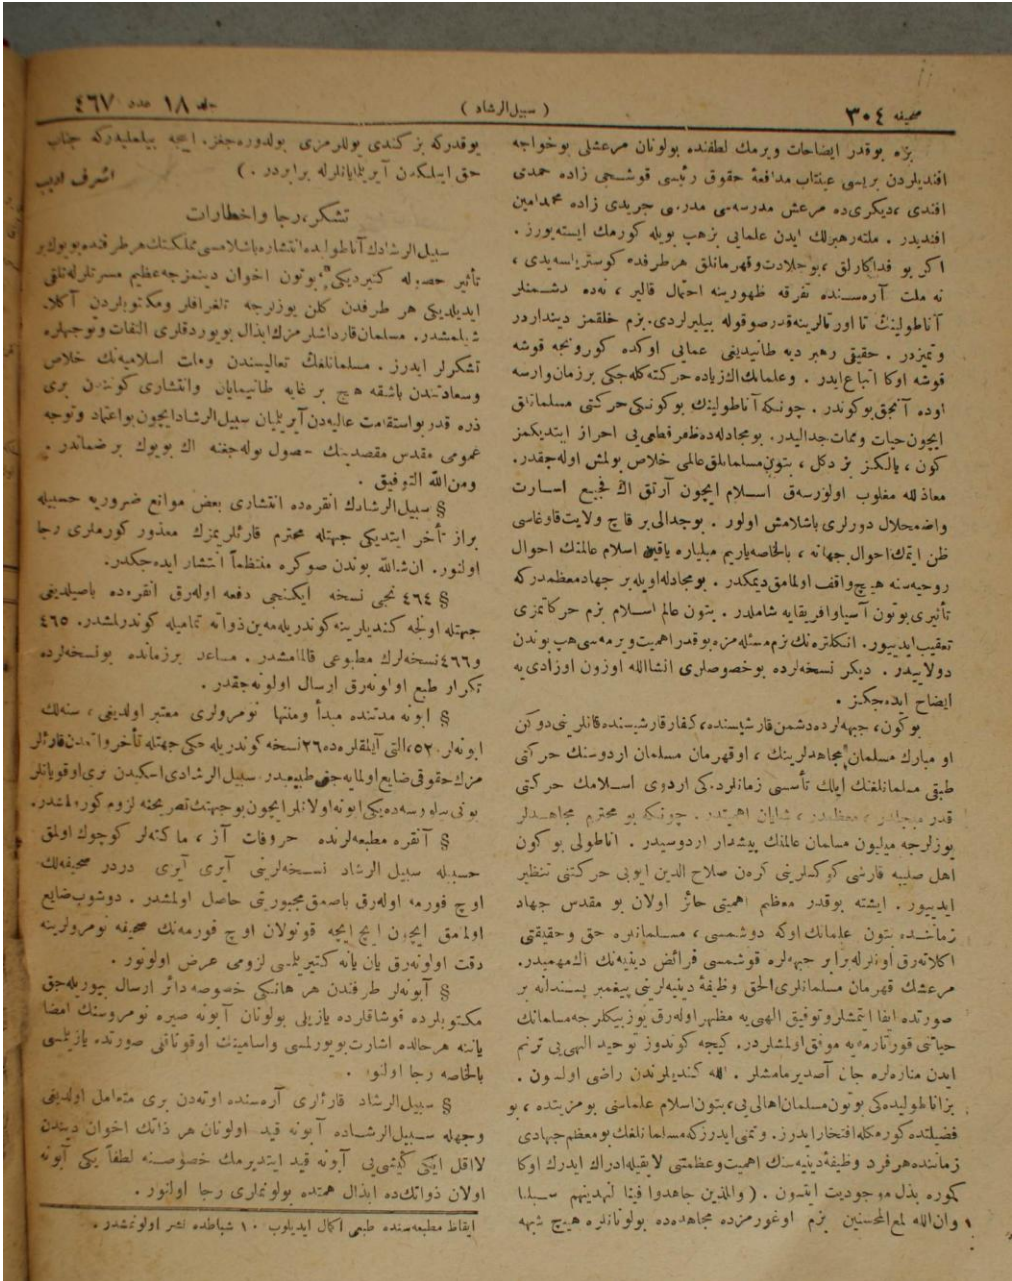 صحیفه ٣٠٤
( سبیل‌الرشاد )
جلد ١٨ عدد ٤٦٧
بزه بوقدر ایضاحات ویرمك لطفنده بولونان مرعشلی بوخواجه
افندیلردن بریسی عینتاب مدافعهٔ حقوق رئیسی قوشجی زاده حمدی
افندی ، دیكری ده مرعش مدرسه‌سی مدرسی جریدی زاده محمدامین
افندیدر . ملته رهبرلك ایدن علمایی بز هپ بویله كورمك ایسته‌یورز .
اكر بو فداكارلق ، بوجلادت و قهرمانلق هر طرفده كوستریلسه‌یدی ،
نه ملت آره‌سنده تفرقه ظهورینه احتمال قالیر ، نه‌ده دشمنلر
آناطولینك تا اورتالرینه قدر صوقوله بیلیرلردی. بزم خلقمز دینداردر
و تمیزدر . حقیقی رهبر دیه طانیدیغی عمایی اوكده كورونجه قوشه
قوشه اوكا اتباع ایدر . وعلمانك اك زیاده حركته كله‌جكی بر زمان وارسه
اوده آنجق بوكوندر . چونكه آناطولینك بوكونكی حركتی مسلمانلق
ایچون حیات و ممات جدالیدر. بو مجادله‌ده ظفر قطعی‌یی احراز ایتدیكمز
كون ، یالكز بز دكل ، بتون مسلمانلق عالمی خلاص بولمش اوله‌جقدر.
معاذ لله مغلوب اولورسه‌ق اسلام ایچون آرتق اك فجیع اسارت
واضمحلال دورلری باشلامش اولور . بو جدالی بر قاچ ولایت قاوغاسی
ظن ایتمك احوال جهانه ، بالخاصه یاریم میلیاره یاقین اسلام عالمنك احوال
روحیه‌سنه هیچ واقف اولمامق دیمكدر . بو مجادله اویله بر جهاد معظمدركه
تأثیری بوتون آسیا و افریقایه شاملدر . بتون عالم اسلام بزم حركاتمزی
تعقیب ایدییور. انكلتره‌نك بزم مسئله‌مزه بوقدر اهمیت ویرمه‌سی هپ بوندن
دولاییدر . دیكر نسخه‌لرده بو خصوصلری انشاالله اوزون اوزادی‌یه
ایضاح ایده‌جكز .
بوكون، جبهه‌لرده دشمن قارشیسنده، كفار قارشیسنده قانلرینی دوكن
او مبارك مسلمان مجاهدلرینك ، او قهرمان مسلمان اردوسنك حركتی
طبقی مسلمانلغك ایلك تأسسی زمانلرده‌كی اردوی اسلامك حركتی
قدر مبجلدر ، معظمدر ، شایان اهمیتدر . چونكه بو محترم مجاهدلر
یوزلرجه میلیون مسلمان عالمنك پیشدار اردوسیدر . اناطولی بوكون
اهل صلیبه قارشی كوكسلرینی كرەن صلاح الدین ایوبی حركتنی تنظیر
ایدییور . ایشته بوقدر معظم اهمیتی حائز اولان بو مقدس جهاد
زماننده بتون علمانك اوكه دوشمسی ، مسلمانلره حق و حقیقتی
اكلاته‌رق اونلرله برابر جبهه‌لره قوشمسی فرائض دینیه‌نك اك مهمیدر.
مرعشك قهرمان مسلمانلری الحق وظیفهٔ دینیه‌لرینی پیغمبر پسندانه بر
صورتده ایفا ایتمشلر و توفیق الهی‌یه مظهر اوله‌رق یوز بیكلرجه مسلمانك
حیاتنی قورتارمه‌یه موفق اولمشلردر. كیجه كوندوز توحید الهی‌یی ترنم
ایدن مناره‌لره چان آصدیرمامشلر . الله كندیلرندن راضی اولسون .
بز اناطولیده‌كی بوتون مسلمان اهالی‌یی، بتون اسلام علماسنی بو مزیتده ، بو
فضیلتده كورمكله افتخار ایدرز. و تمنی ایدرزكه مسلمانلغك بو معظم جهادی
زماننده هر فرد وظیفهٔ دینیه‌سنك اهمیت و عظمتنی لایقیله ادراك ایدرك اوكا
كوره بذل موجودیت ایتسون . ( والذین جاهدوا فینا لنهدینهم سبلنا
وان‌الله لمع المحسنین بزم اوغورمزده مجاهده‌ده بولونانلره هیچ شبهه
یوقدركه بز كندی یوللرمزی بولدوره‌جغز. ایجه بیلملیدركه جناب
حق ایلكدن آیریلمایانلرله برابردر . )
اشرف ادیب
تشكر، رجا و اخطارات
سبیل‌الرشادك آناطولیده انتشاره باشلامسی مملكتك هر طرفنده بویوك بر
تأثیر حصوله كتیردیكی، بوتون اخوان دینمزجه عظیم مسرتلرله تلقی
ایدیلدیكی هر طرفدن كلن یوزلرجه تلغرافلر ومكتوبلردن آكلا.
شیلمشدر. مسلمان قارداشلرمزك ابذال بویوردقلری التفات و توجهلره
تشكرلر ایدرز . مسلمانلغك تعالیسندن وملت اسلامیه‌نك خلاص
وسعادتندن باشقه هیچ بر غایه طانیمایان وانتشاری كونندن بری
ذره قدر بو استقامت عالیه‌دن آیریلمیان سبیل‌الرشاد ایچون بو اعتماد و توجه
عمومی مقدس مقصدینك حصول بوله‌جغنه اك بویوك بر ضماندر .
ومن‌الله التوفیق .
§ سبیل‌الرشادك انقره‌ده انتشاری بعض موانع ضروریه حسبیله
براز تأخر ایتدیكی جهتله محترم قارئلریمزك معذور كورملری رجا
اولنور. ان‌شاءالله بوندن صوكره منتظماً انتشار ایده‌جكدر.
§ ٤٦٤ نجی نسخه ایكنجی دفعه اوله‌رق انقره‌ده باصیلدیغی
جهتله اولجه كندیلرینه كوندریله‌مه‌ین ذواته تمامیله كوندرلمشدر. ٤٦٥
و٤٦٦ نسخه‌لرك مطبوعی قالمامشدر . مساعد بر زمانده بو نسخه‌لرده
تكرار طبع اولونه‌رق ارسال اولونه‌جقدر .
§ ابونه مدتنده مبدأ ومنتها نومرولری معتبر اولدیغی ، سنه‌لك
ابونه‌لر ٥٢، التی آیلقلره‌ده ٢٦ نسخه كوندریله‌جكی جهتله تأخر واقعدن قارئلر
مزك حقوقی ضایع اولمایه‌جغی طبیعیدر. سبیل‌الرشادی اسكیدن بری اوقویانلر
بونی بیلیرسه‌ده یكی ابونه اولانلر ایچون بو جهتك تصریحنه لزوم كورلمشدر.
§ آنقره مطبعه‌لرنده حروفات آز ، ماكنه‌لر كوچوك اولمق
حسبیله سبیل الرشاد نسخه‌لرینی آیری آیری دردر صحیفه‌لك
اوچ فورمه اوله‌رق باصمق مجبوریتی حاصل اولمشدر . دوشوب ضایع
اولمامق ایچون ایچ ایچه قونولان اوچ فورمه‌نك صحیفه نومرولرینه
دقت اولونه‌رق یان یانه كتیریلمسی لزومی عرض اولونور .
§ آبونه‌لر طرفندن هر هانكی خصوصه دائر ارسال بیوریله‌جق
مكتوبلرده قوشاقلرده یازیلی بولونان آبونه صیره نومروسنك امضا
یاننه هرحالده اشارت بویورلمسی واسامینك اوقوناقلی صورتده یازیلمسی
بالخاصه رجا اولنور .
§ سبیل‌الرشاد قارئلری آره‌سنده اوته‌دن بری متعامل اولدیغی
وجهله سبیل‌الرشاده آبونه قید اولونان هر ذاتك اخوان دیندن
لااقل ایكی كیشی‌یی آبونه قید ایتدیرمك خصوصنه لطفاً یكی آبونه
اولان ذواتك‌ده ابذال همتده بولونملری رجا اولنور .
ایقاظ مطبعه‌سنده طبعی اكمال ایدیلوب ١٠ شباطده نشر اولونمشدر .